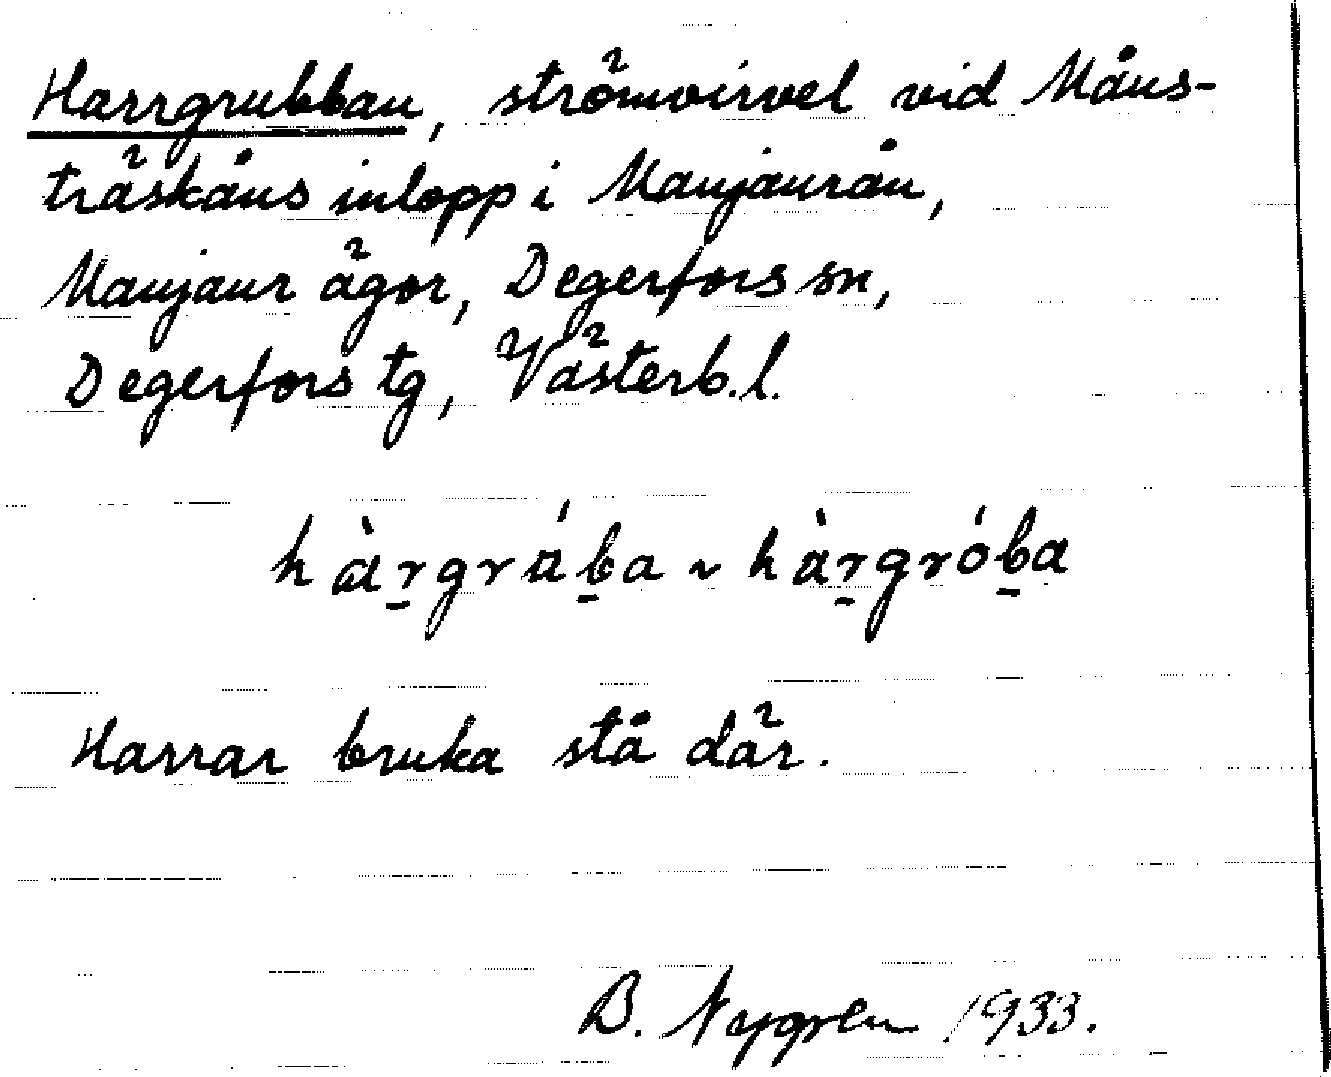 Harrgrubban, strömvirvel vid Måns-
träskåns inlopp i Maujaurån,
Maujaur ägor, Degerfors sn,
Degerfors tg, Västerb.l.
hàr̠grάb̠a ~ hàr̠grób̠a
Harrar bruka stå där.
B. Nygren 1933.